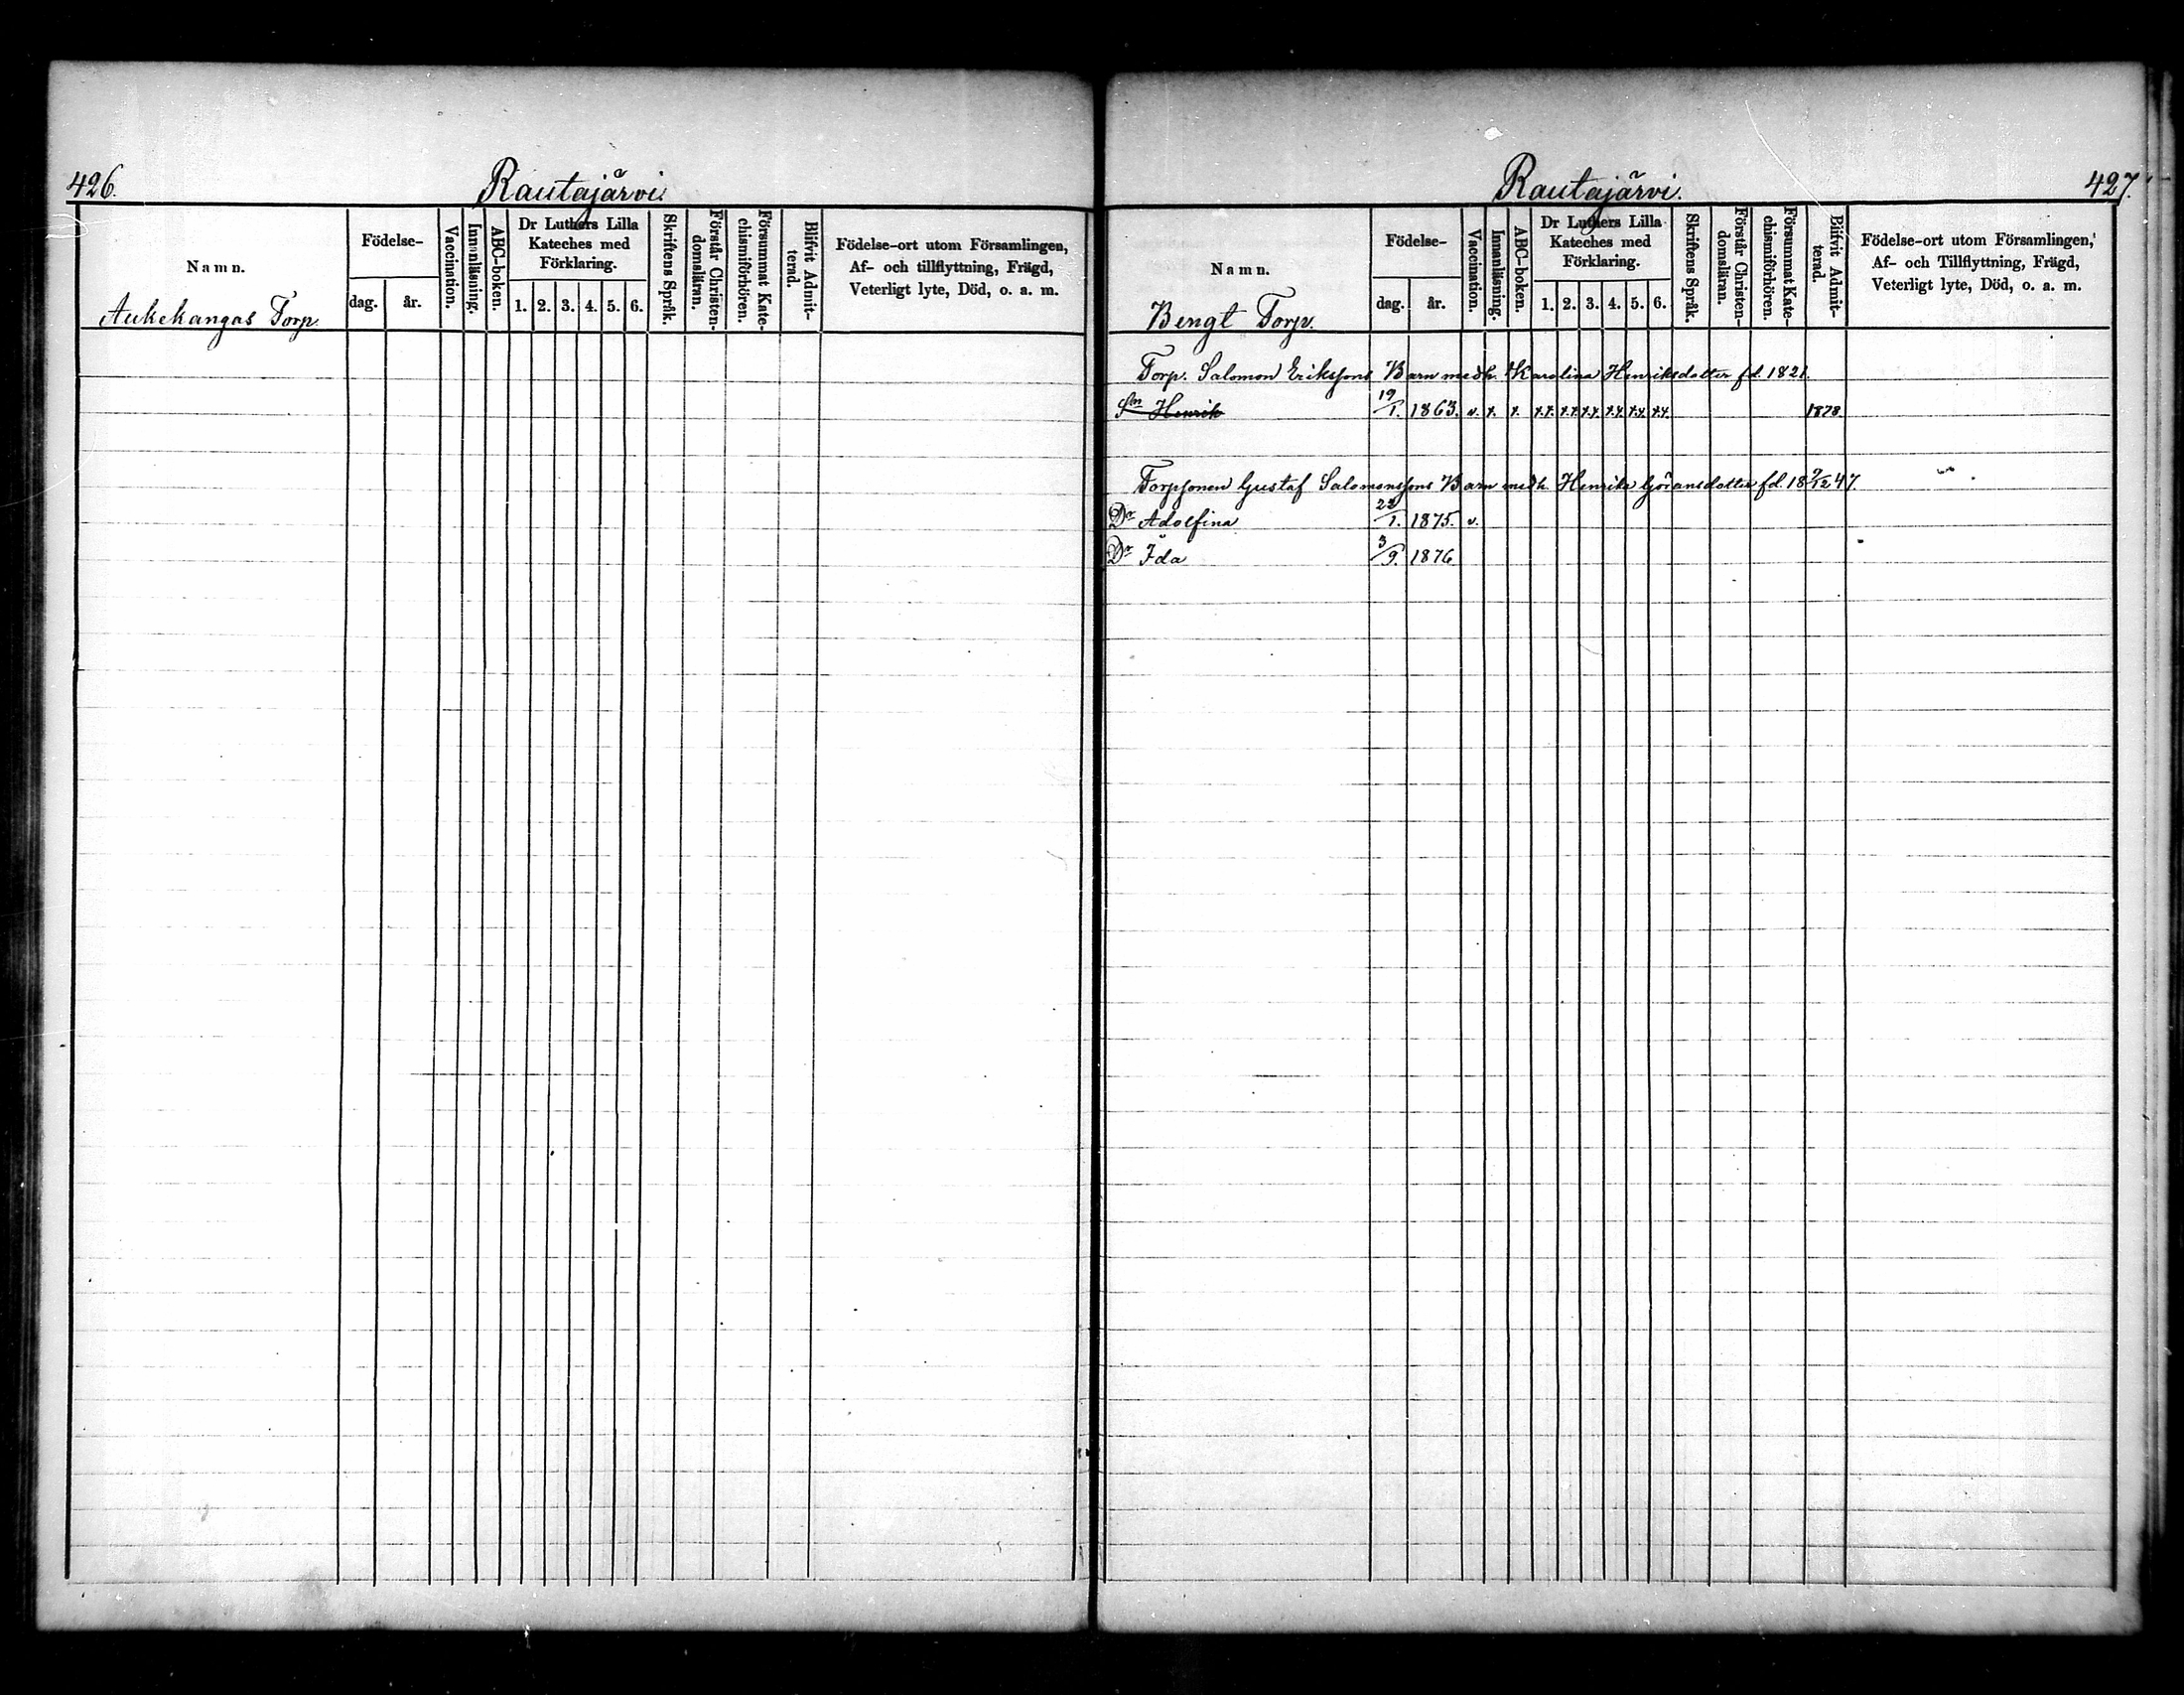 426.
Rautajärvi
Namn.
Födelse-
dag.
år.
Vaccination.
Innanläsning.
ABC-boken.
Dr Luthers Lilla
Kateches med
Förklaring.
1. 2. 3. 4. 5. 6.
Skriftens Språk.
Förstår Christen-
domsläran.
Försummat Kate-
chismiförhören.
Blifvit Admit-
terad.
Födelse-ort utom Församlingen,
Af- och tillflyttning, Frägd,
Veterligt lyte, Död, o. a. m.
Aukekangas Torp
Rautajärvi.
427.
Namn.
Födelse-
dag.
år.
Vaccination.
Innanläsning.
ABC-boken.
Dr Luthers Lilla
Kateches med
Förklaring.
1. 2. 3. 4. 5. 6.
Skriftens Språk.
Förstår Christen-
domsläran.
Försummat Kate-
chismiförhören.
Blifvit Admit-
terad.
Födelse-ort utom Församlingen,
Af- och Tillflyttning, Frägd,
Veterligt lyte, Död, o. a. m.
Bengt Torp.
Torp. Salomon Erikssons Barn med h. Karolina Henriksdotter fd. 1821.
Sn Henrik 19/1. 1863. v. 1878.
Torpsonen Gustaf Salomonssons Barn med h. Henrika Göransdotter fd. 18 9/12 47.
Dr Adolfina 22/1. 1875. v.
Dr Ida 3/9. 1876